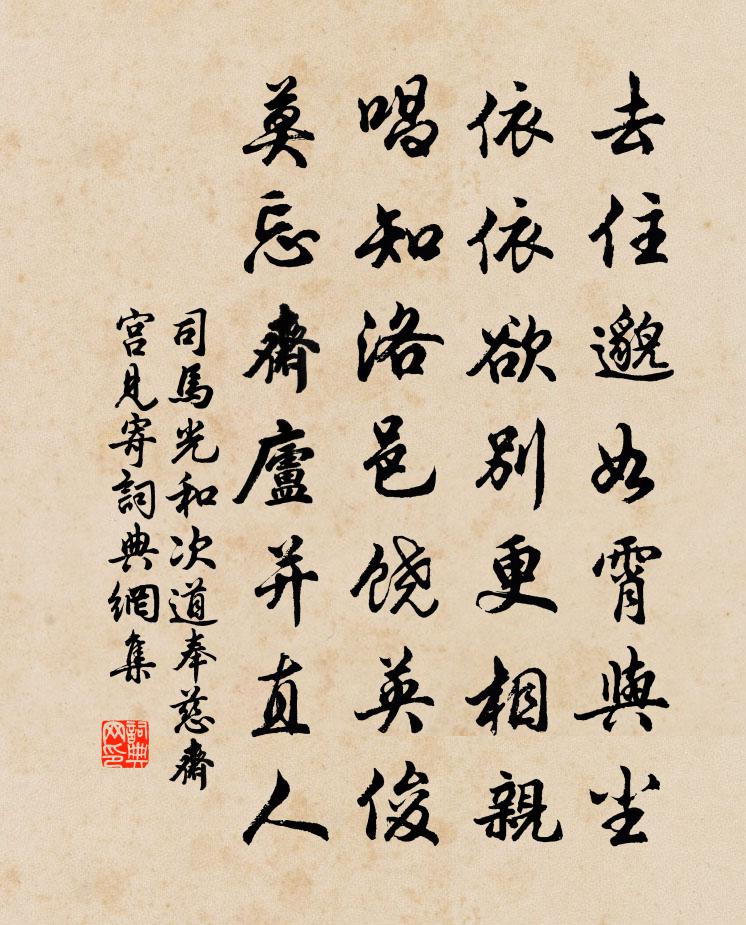 去住邈如霄與尘
依依欲別更相親
唱知洛邑饶英俊
莫忘齋廬并直人
司馬光和次道奉慈齋
宮見寄詞典網集
詞典网印